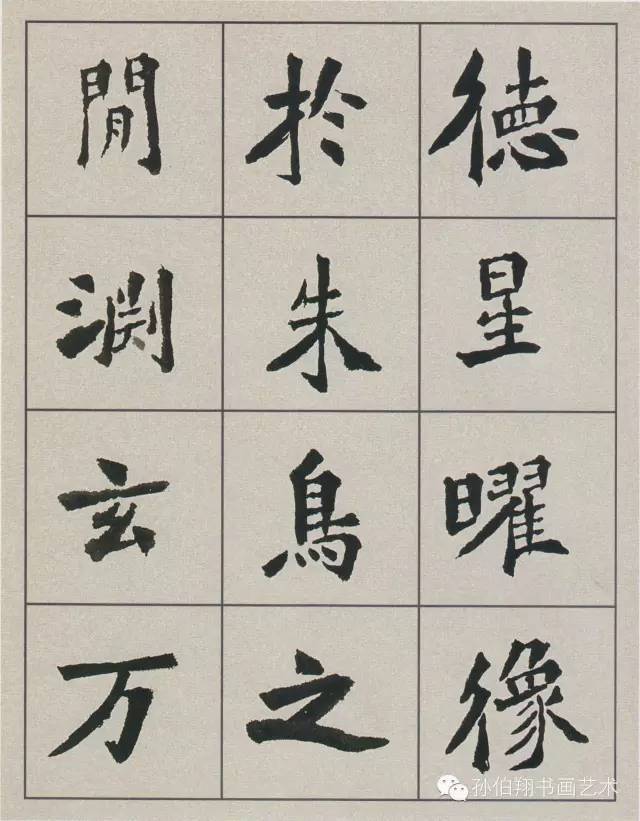 徳星曜像
於朱鳥之
閒淵玄万
孙伯翔书画艺术